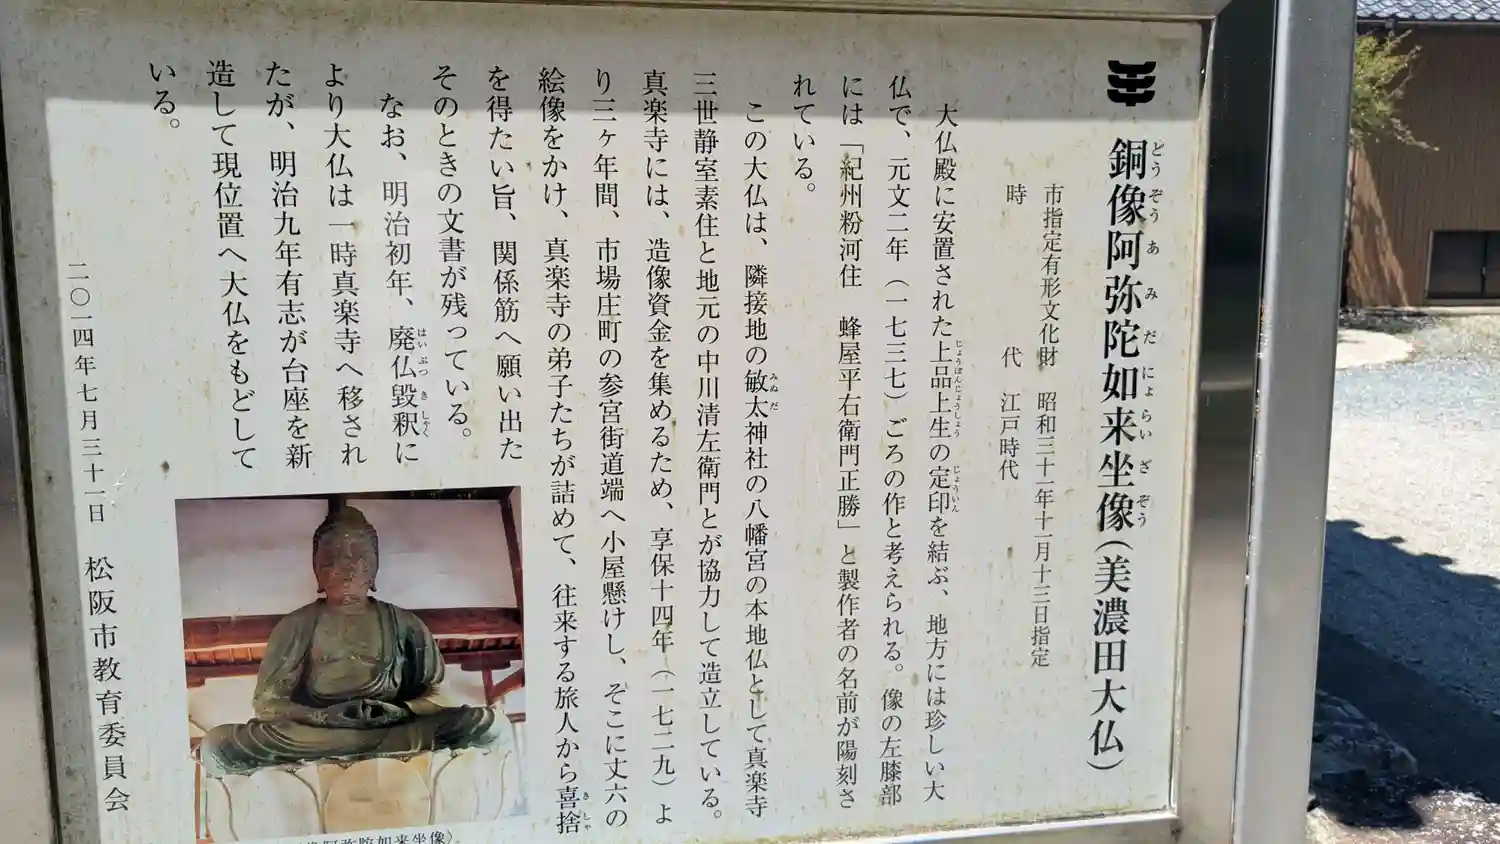 銅像阿弥陀如来坐像(美濃田大仏)
どうぞうあみだにょらいざぞう
市指定有形文化財 昭和三十一年十一月十三日指定
時 代 江戸時代
大仏殿に安置された上品上生の定印を結ぶ、地方には珍しい大
じょうぼんじょうしょう じょういん
仏で、元文二年(一七三七)ごろの作と考えられる。像の左膝部
には「紀州粉河住 蜂屋平右衛門正勝」と製作者の名前が陽刻さ
れている。
この大仏は、隣接地の敏太神社の八幡宮の本地仏として真楽寺
みぬだ
三世静室素住と地元の中川清左衛門とが協力して造立している。
真楽寺には、造像資金を集めるため、享保十四年(一七二九)よ
り三ヶ年間、市場庄町の参宮街道端へ小屋懸けし、そこに丈六の
絵像をかけ、真楽寺の弟子たちが詰めて、往来する旅人から喜捨
きしゃ
を得たい旨、関係筋へ願い出た
そのときの文書が残っている。
なお、明治初年、廃仏毀釈に
はいぶつきしゃく
より大仏は一時真楽寺へ移され
たが、明治九年有志が台座を新
造して現位置へ大仏をもどして
いる。
二〇一四年七月三十一日 松阪市教育委員会
像阿弥陀如来坐像〉